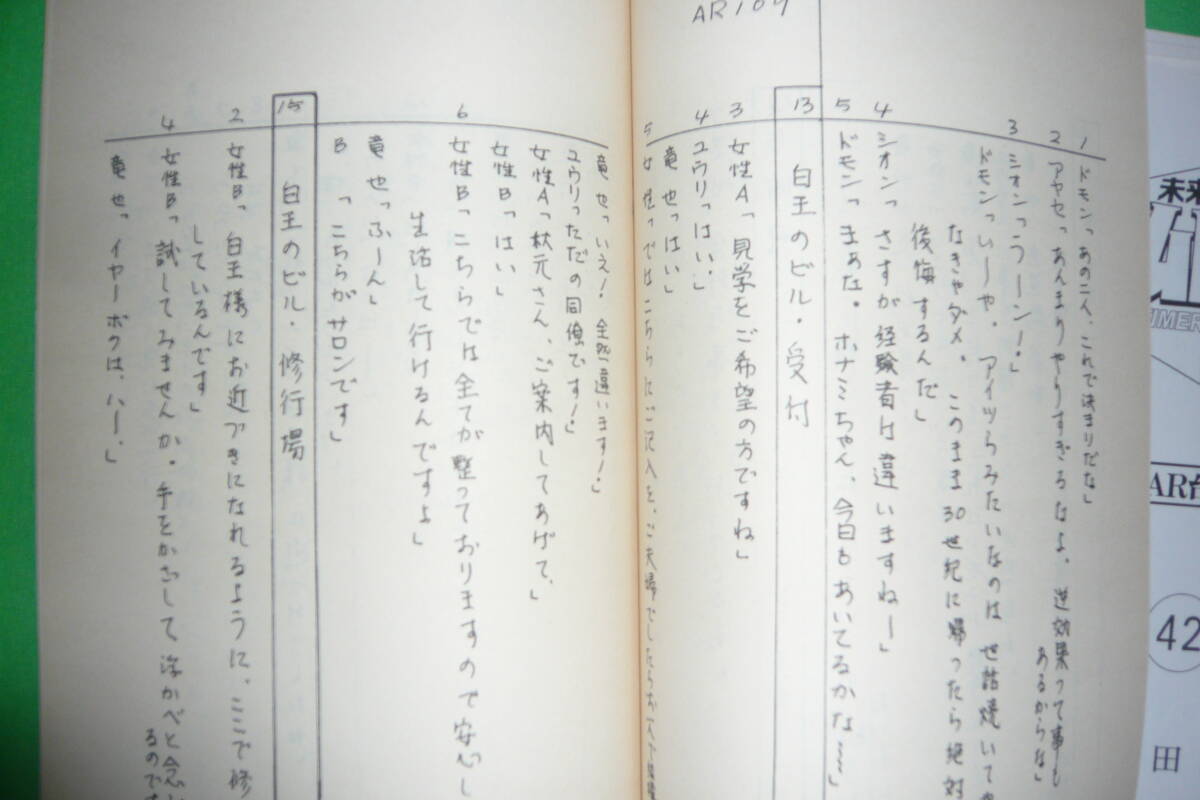 AR109
1 ドモン「あの二人、これで決まりだな」
2 アヤセ「あんまりやりすぎるなよ。逆効果って事も
あるからな」
3 シオン「うーン!」
ドモン「いーや。アイツらみたいなのは 世話焼いて
なきゃダメ。このまま30世紀に帰ったら絶対
後悔するんだ」
4 シオン「さすが経験者は違いますねー」
5 ドモン「まぁな。ホナミちゃん、今日もあいてるかな〜〜」
13 白王のビル・受付
3 女性A「見学をご希望の方ですね」
4 ユウリ「はい。」
竜也「はい」
5 女性「ではこちらにご記入を、ご夫婦でしたらお一人で
竜也「いえ!全然違います!」
ユウリ「ただの同僚です!」
女性A「秋元さん、ご案内してあげて、」
女性B「はい」
6 女性B「こちらでは全てが整っておりますので安心し
生活して行けるんですよ」
竜也「ふーん」
B「こちらがサロンです」
15 白王のビル・修行場
2 女性B「白王様にお近づきになれるように、ここで修
しているんです」
4 女性B「試してみませんか。手をかざして 浮かべと念じ
るのです
竜也「イヤーボクは、ハー、」
未来
TIMER
AR台
42
田